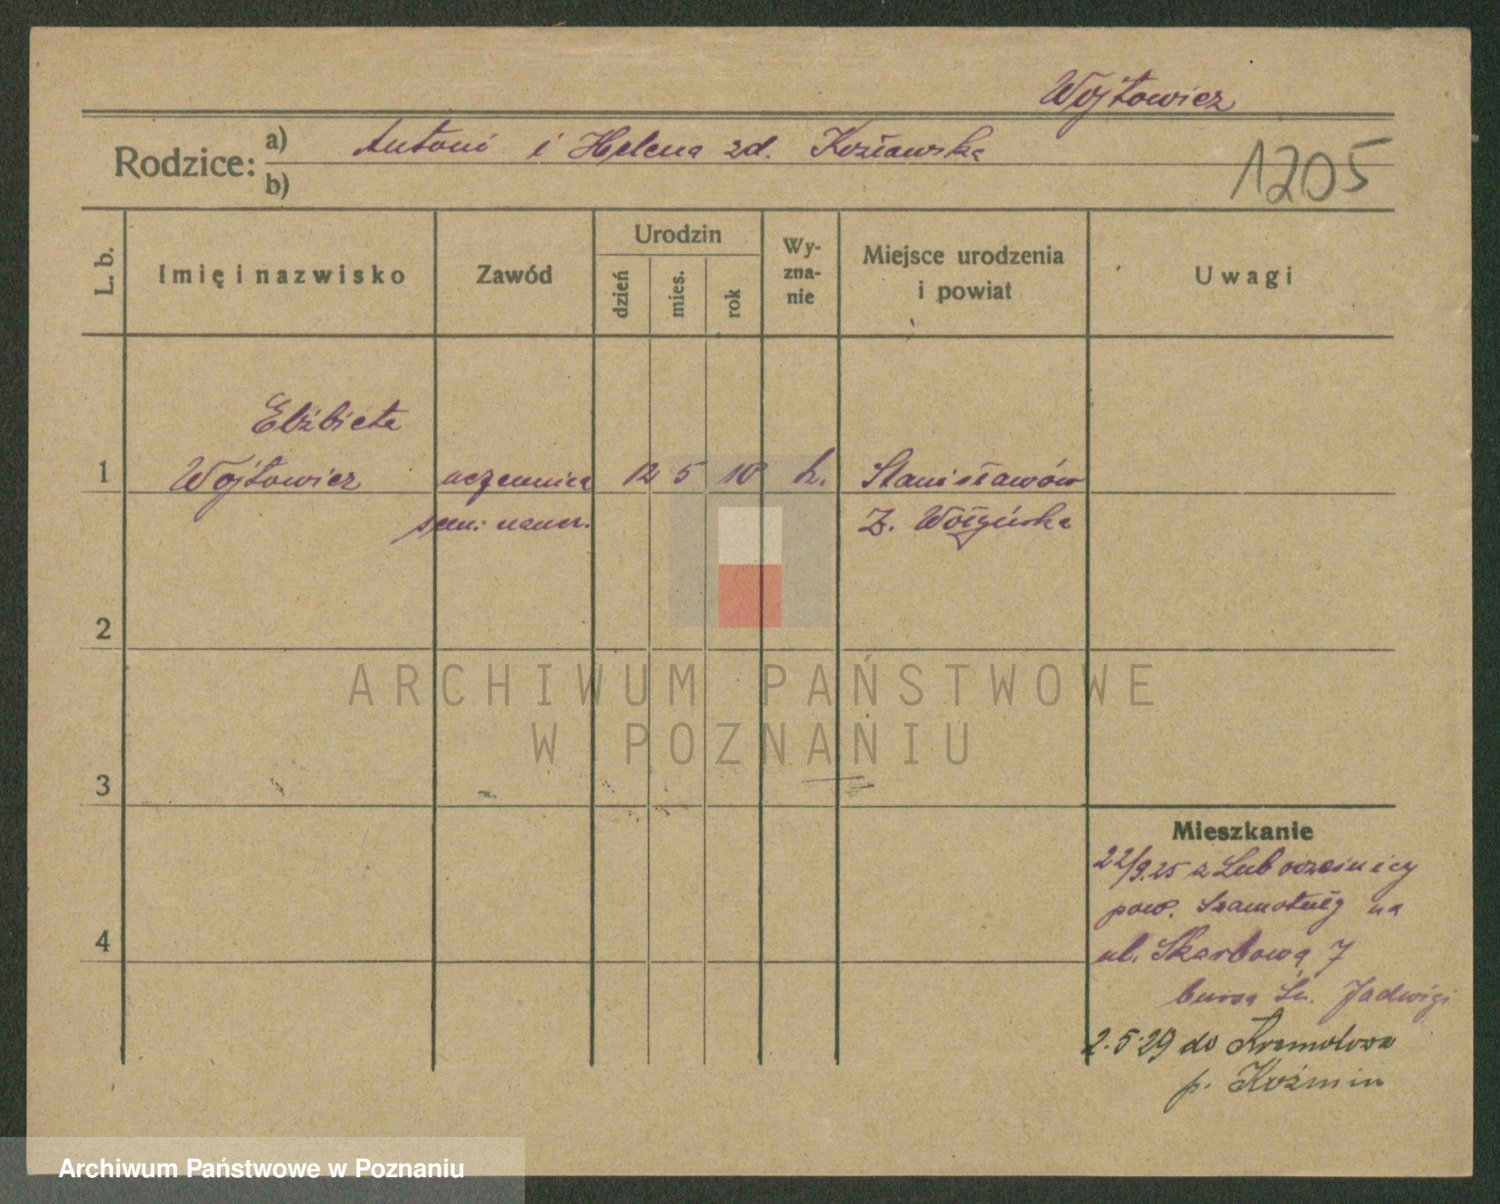 Wojtowicz
Rodzice: a) Antoni i Helena zd. Kozłowska
b)
1205
L. b.
Imię i nazwisko
Zawód
Urodzin
dzień
mies.
rok
Wy-
zna-
nie
Miejsce urodzenia
i powiat
Uwagi
Elżbieta
1 Wojtowicz uczennica 12 5 10 k. Stanisławów
sem. naucz. Z. Wołyńska
2
ARCHIWUM PAŃSTWOWE
W POZNANIU
3
Mieszkanie
22/9.25 z
pow. Szamotuły na
4
ul. Skarbową 7
bursa Św. Jadwigi
2.5.29 do
p. Koźmin
Archiwum Państwowe w Poznaniu